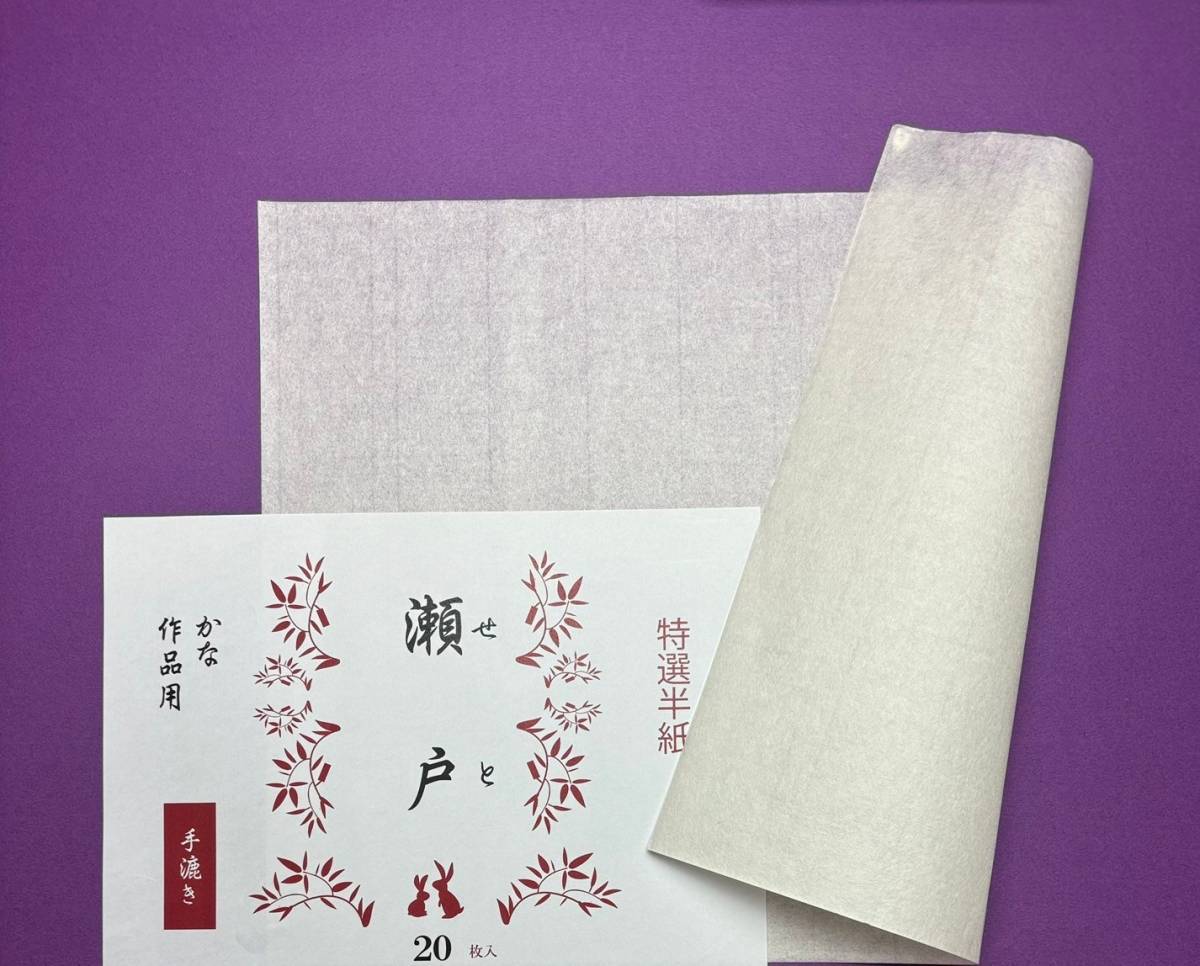 特選半紙
せと
瀬戸
かな
作品用
手漉き
20枚入